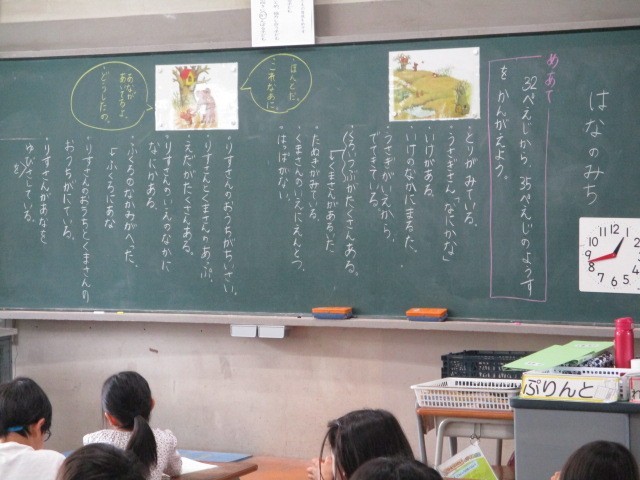 はなのみち
めあて
32ぺえじから、35ぺえじのようす
を かんがえよう。
・とりがみている。
・うさぎさん「なにかな」
・いけがある。
・いけのなかにまるた。
・うさぎがいえから、
でてきている。
・くろいつぶがたくさんある。
くまさんがあるいた
・たぬきがみている。
・くまさんのいえにえんとつ。
・はっぱがない。
ほんとだ。
これなあに。
あながあいてるよ。
どうしたの。
・りすさんのおうちがちいさい。
・りすさんとくまさんのあいだ
・えだがたくさんある。
・りすさんのいえのなかに
なにかある。
・ふくろのなかみがへった。
・りすさんのおうちとくまさんの
おうちがにている。
・りすさんがあなを
ゆびさしている。
ぷりんと
12
1
2
3
4
5
6
7
8
9
10
11